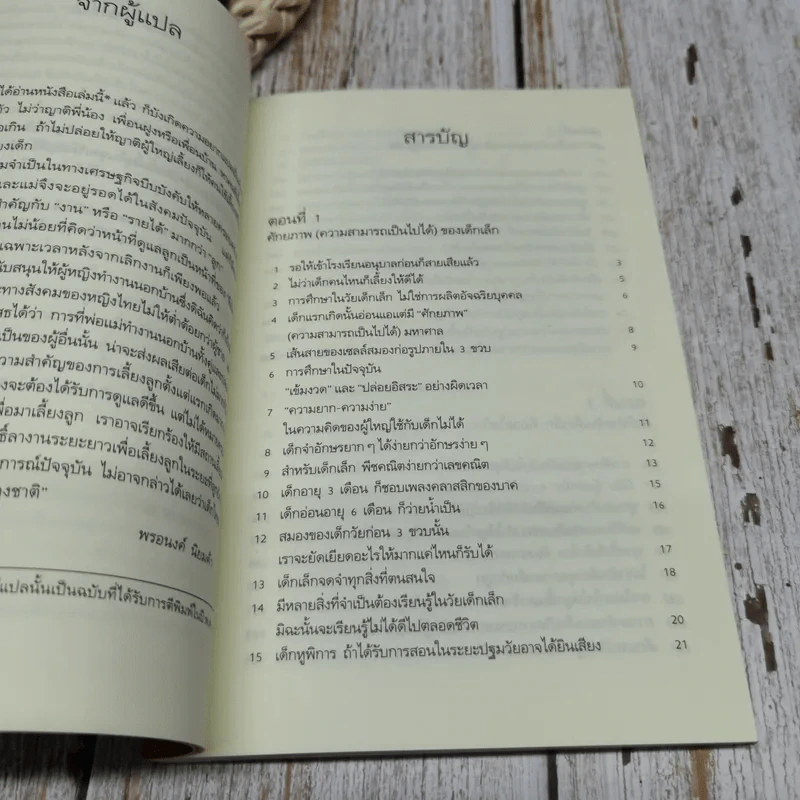 จากผู้แปล
ได้อ่านหนังสือเล่มนี้* แล้ว ก็บังเกิดความ
ไม่ว่าญาติพี่น้อง เพื่อนฝูงหรือเพื่อนบ้าน
ถ้าไม่ปล่อยให้ญาติผู้ใหญ่เลี้ยงก็ให้
เด็ก
จำเป็นในทางเศรษฐกิจบีบบังคับให้
และแม่จึงจะอยู่รอดได้ในสังคมปัจจุบัน
สำคัญกับ "งาน" หรือ "รายได้" มากกว่า "ลูก"
ไม่น้อยที่คิดว่าหน้าที่ดูแลลูกเป็นหน้าที่ของ
เฉพาะเวลาหลังจากเลิกงานก็เพียงพอแล้ว
สนุนให้ผู้หญิงทำงานนอกบ้านซึ่งดิฉัน
ทางสังคมของหญิงไทยไม่ให้ต่ำต้อยกว่า
ได้ว่า การที่พ่อแม่ทำงานนอกบ้าน
เป็นของผู้อื่นนั้น น่าจะส่งผลเสียต่อเด็ก
ความสำคัญของการเลี้ยงลูกตั้งแต่แรกเกิด
จะต้องได้รับการดูแลดีขึ้น แต่ไม่ได้
เพื่อมาเลี้ยงลูก เราอาจเรียกร้องให้
ลางานระยะยาวเพื่อเลี้ยงลูกในระยะ
การณ์ปัจจุบัน ไม่อาจกล่าวได้เลยว่า
ชาติ"
พรอนงค์
แปลนั้นเป็นฉบับที่ได้รับการตีพิมพ์
สารบัญ
ตอนที่ 1
ศักยภาพ (ความสามารถเป็นไปได้) ของเด็กเล็ก
1 รอให้เข้าโรงเรียนอนุบาลก่อนก็สายเสียแล้ว 3
2 ไม่ว่าเด็กคนไหนก็เลี้ยงให้ดีได้ 5
3 การศึกษาในวัยเด็กเล็ก ไม่ใช่การผลิตอัจฉริยบุคคล 6
4 เด็กแรกเกิดนั้นอ่อนแอแต่มี "ศักยภาพ"
(ความสามารถเป็นไปได้) มหาศาล 8
5 เส้นสายของเซลล์สมองก่อรูปภายใน 3 ขวบ 9
6 การศึกษาในปัจจุบัน
"เข้มงวด" และ "ปล่อยอิสระ" อย่างผิดเวลา 10
7 "ความยาก-ความง่าย"
ในความคิดของผู้ใหญ่ใช้กับเด็กไม่ได้ 11
8 เด็กจำอักษรยาก ๆ ได้ง่ายกว่าอักษรง่าย ๆ 12
9 สำหรับเด็กเล็ก พีชคณิตง่ายกว่าเลขคณิต 13
10 เด็กอายุ 3 เดือน ก็ชอบเพลงคลาสสิกของบาค 15
11 เด็กอ่อนอายุ 6 เดือน ก็ว่ายน้ำเป็น 16
12 สมองของเด็กวัยก่อน 3 ขวบนั้น
เราจะยัดเยียดอะไรให้มากแค่ไหนก็รับได้ 17
13 เด็กเล็กจดจำทุกสิ่งที่ตนสนใจ 18
14 มีหลายสิ่งที่จำเป็นต้องเรียนรู้ในวัยเด็กเล็ก
มิฉะนั้นจะเรียนรู้ไม่ได้ดีไปตลอดชีวิต 20
15 เด็กหูพิการ ถ้าได้รับการสอนในระยะปฐมวัยอาจได้ยินเสียง 21